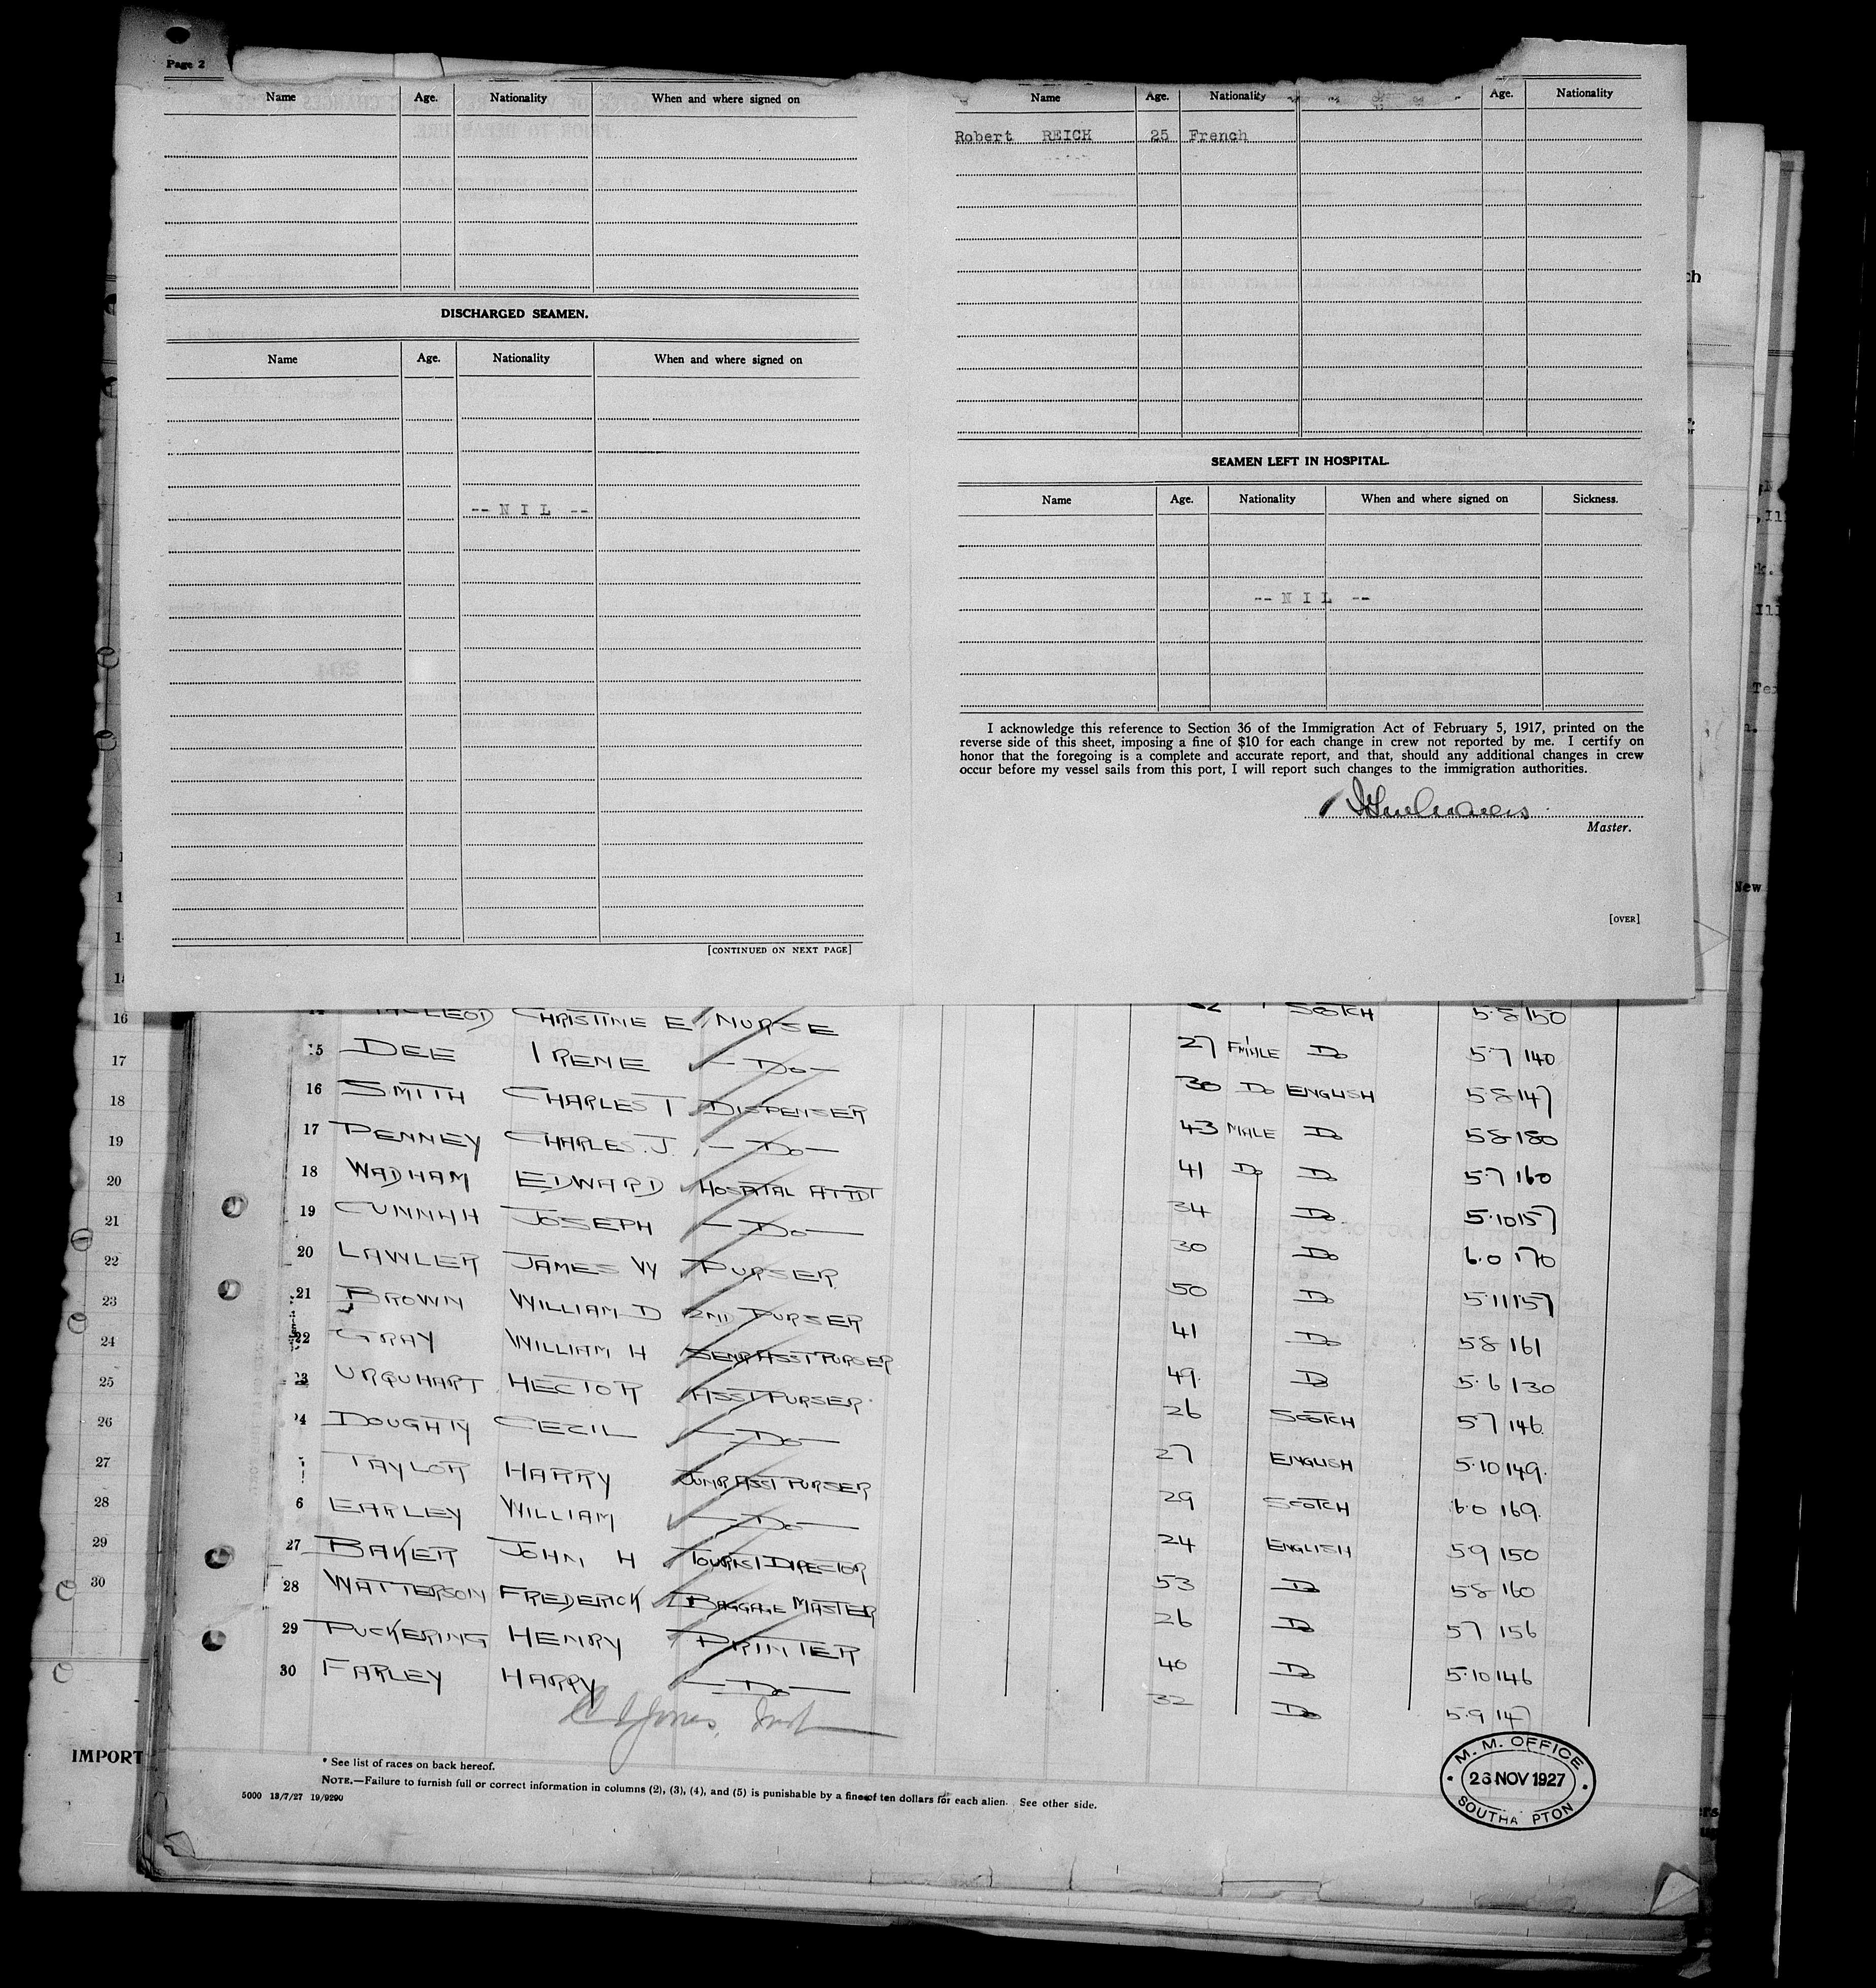 Page 2
Name Age. Nationality When and where signed on
DISCHARGED SEAMEN.
Name Age. Nationality When and where signed on
-- N I L --
[CONTINUED ON NEXT PAGE]
Name Age. Nationality Age. Nationality
Robert REICH 25 French
SEAMEN LEFT IN HOSPITAL.
Name Age. Nationality When and where signed on Sickness.
-- N I L --
I acknowledge this reference to Section 36 of the Immigration Act of February 5, 1917, printed on the
reverse side of this sheet, imposing a fine of $10 for each change in crew not reported by me. I certify on
honor that the foregoing is a complete and accurate report, and that, should any additional changes in crew
occur before my vessel sails from this port, I will report such changes to the immigration authorities.
Master.
[OVER]
SCOTCH 5.8 150
McLEOD CHRISTINE E NURSE 27 F'MALE Do 5.7 140
15 DEE IRENE — Do — 30 Do ENGLISH 5.8 147
16 SMITH CHARLES T DISPENSER 43 MALE Do 5.8 180
17 PENNEY CHARLES. J. — Do — 41 Do Do 5.7 160
18 WADHAM EDWARD HOSPITAL ATTDT 34 Do 5.10 157
19 CUNNAH JOSEPH — Do — 30 Do 6.0 170
20 LAWLER JAMES W PURSER 50 Do 5.11 157
21 BROWN WILLIAM D 2ND PURSER 41 Do 5.8 161
22 GRAY WILLIAM H SENR ASST PURSER 49 Do 5.6 130
23 URQUHART HECTOR ASST PURSER 26 SCOTCH 5.7 146
24 DOUGHTY CECIL — Do — 27 ENGLISH 5.10 149
TAYLOR HARRY JUNIOR ASST PURSER 29 SCOTCH 6.0 169
6 EARLEY WILLIAM — Do — 24 ENGLISH 5.9 150
27 BAKER JOHN H TOURIST DIRECTOR 53 Do 5.8 160
28 WATTERSON FREDERICK BAGGAGE MASTER 26 Do 5.7 156
29 PUCKERING HENRY PRINTER 40 Do 5.10 146
30 FARLEY HARRY — Do — 32 Do 5.9 147
* See list of races on back hereof.
NOTE.—Failure to furnish full or correct information in columns (2), (3), (4), and (5) is punishable by a fine of ten dollars for each alien. See other side.
5000 13/7/27 19/9290
M. M. OFFICE
26 NOV 1927
SOUTHA PTON
16
17
18
19
20
21
22
23
24
25
26
27
28
29
30
IMPORT
New